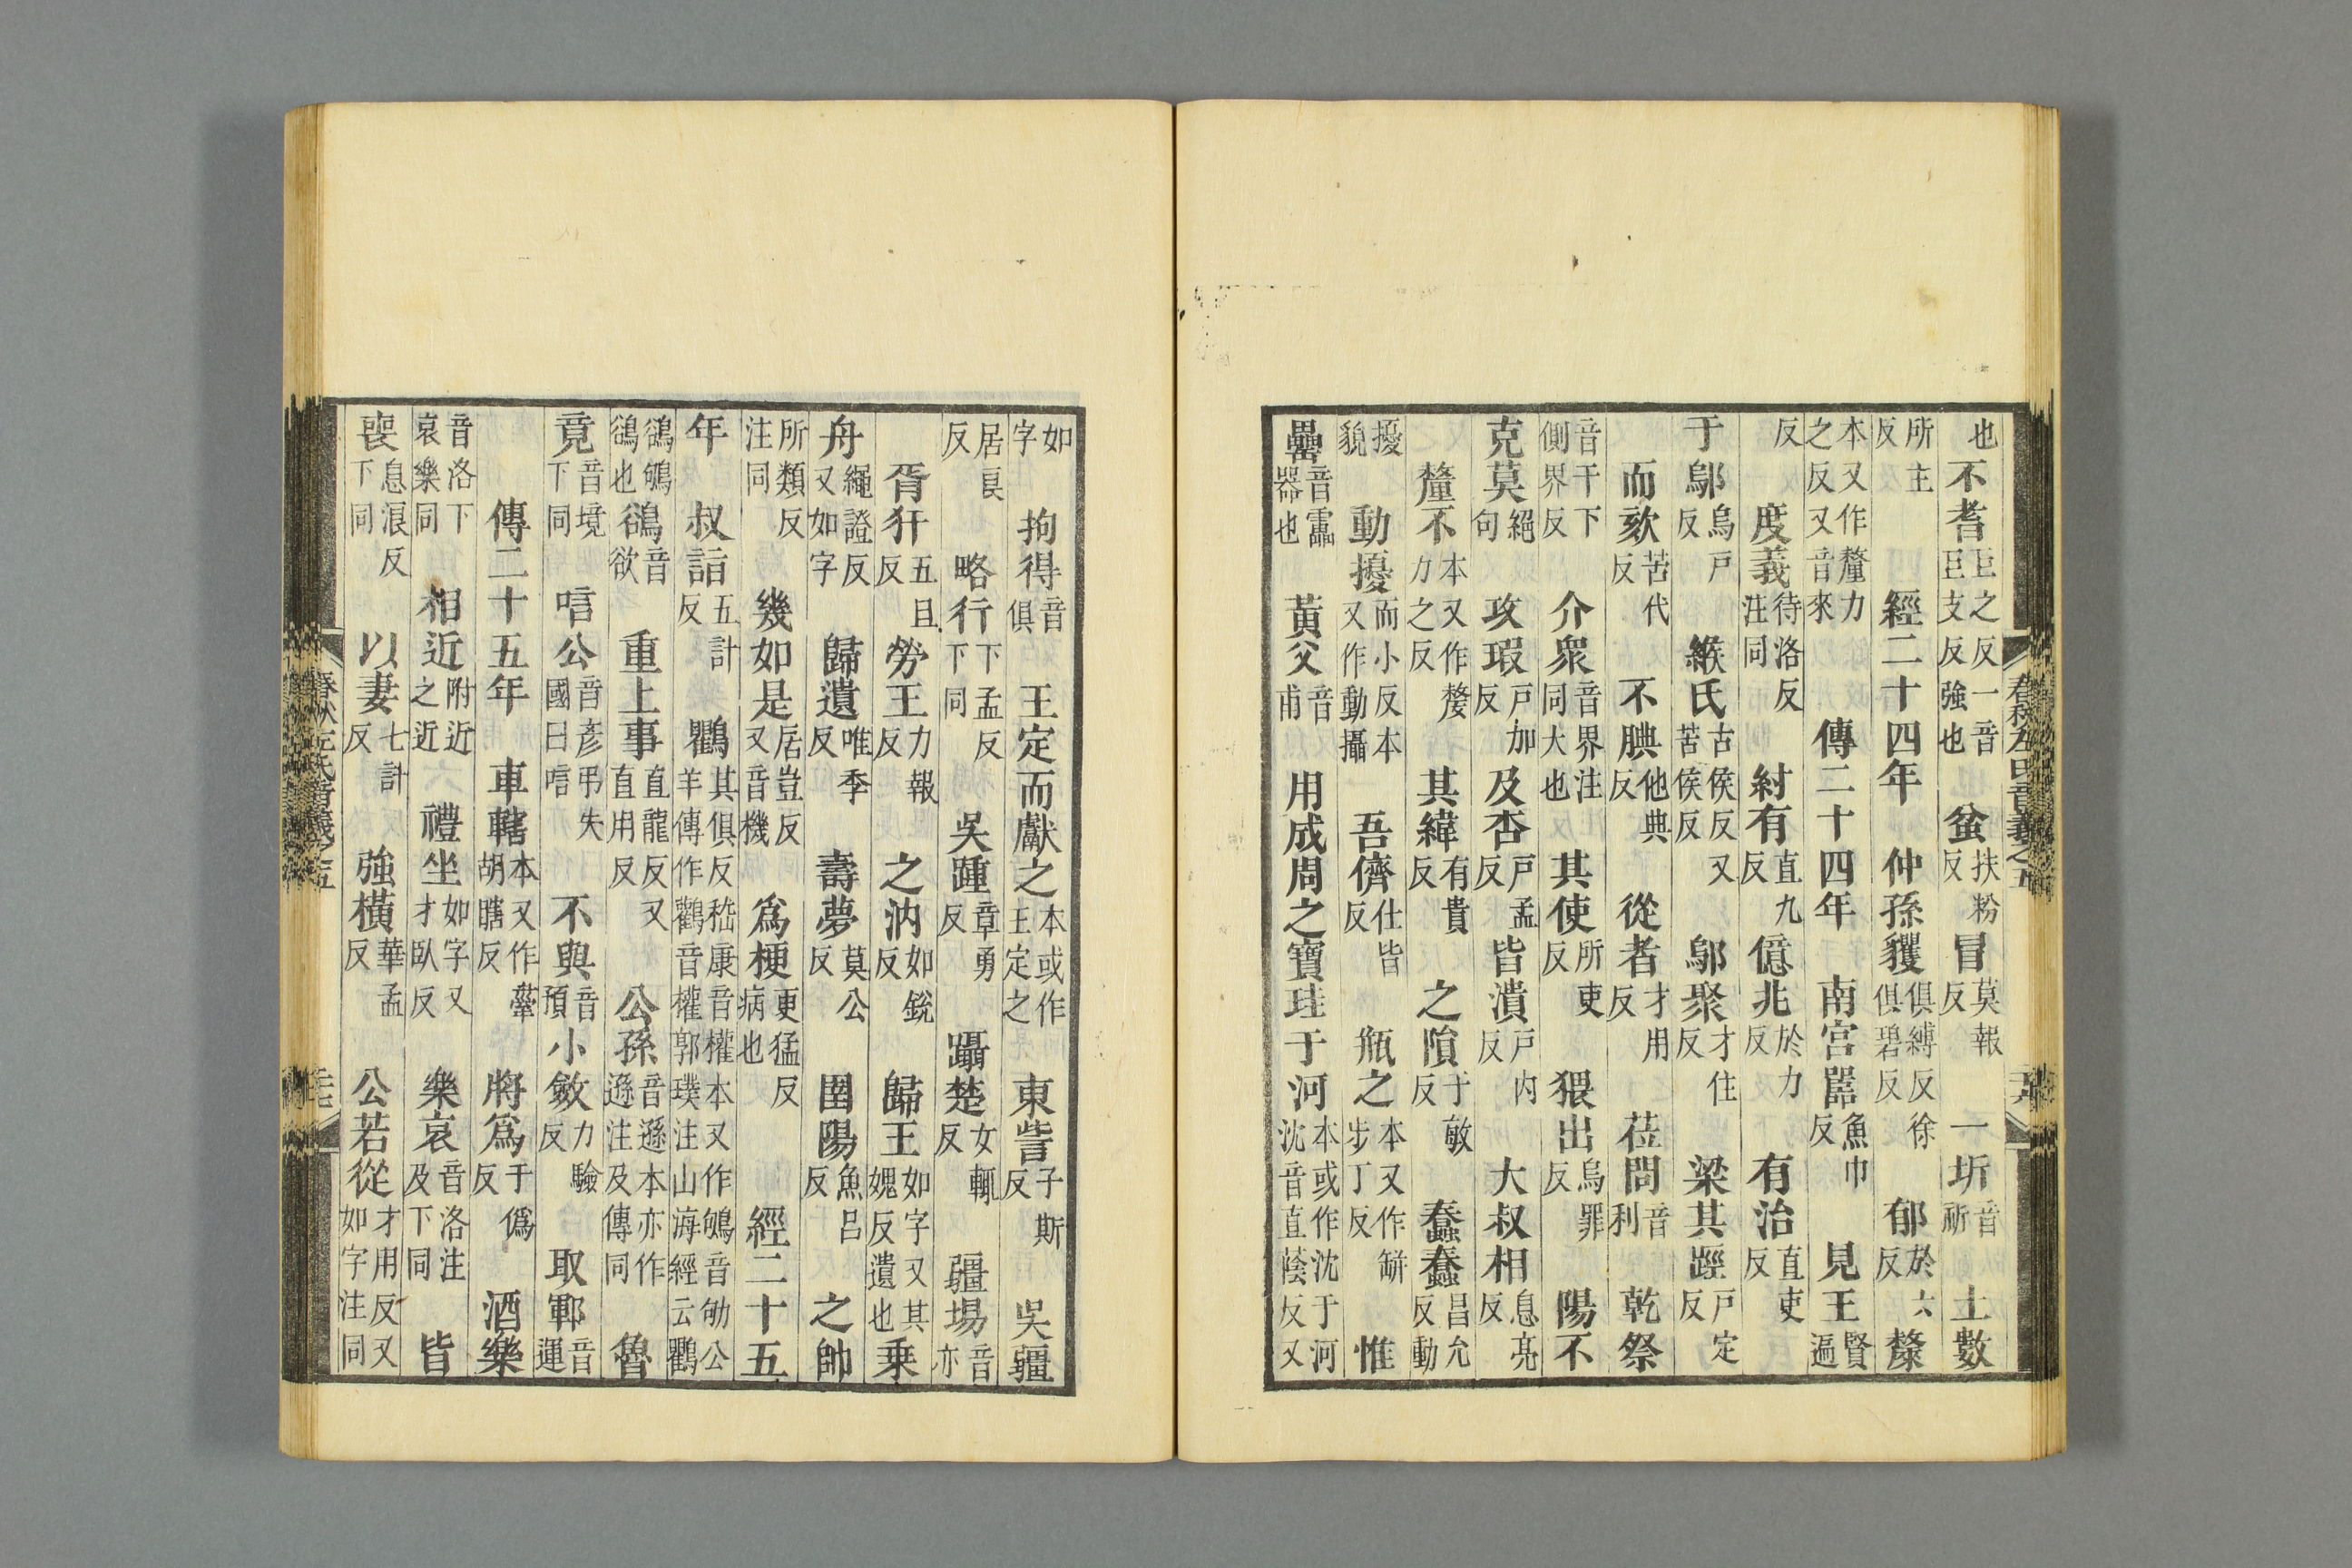 春秋左氏音義之五
也不耆巨之反一音巨支反強也 蚠扶粉反 冒莫報反 一圻音祈 土數
所主反 經二十四年 仲孫貜俱縛反徐俱碧反 郁於六反 斄
本又作釐力之反又音來 傳二十四年 南宮嚚魚巾反 見王賢遍
反 度義待洛反注同 紂有直九反 億兆於力反 有治直吏反
于鄔烏戸反 緱氏古侯反又苦侯反 鄔聚才住反 梁其踁戸定反
而欬苦代反 不腆他典反 從者才用反 莅問音利 乾祭
音干下側界反 介衆音界注同大也 其使所吏反 猥出烏罪反 陽不
克莫絕句 攻瑕戸加反 及杏戸孟反 皆潰戸内反 大叔相息亮反
釐不本又作嫠力之反 其緯有貴反 之隕于敏反 蠢蠢昌允反動
擾貌 動擾而小反本又作動攝 吾儕仕皆反 瓶之本又作缾步丁反 惟
罍音靁器也 黃父音甫 用成周之寶珪于河本或作沈于河沈音直蔭反又
如字 拘得音俱 王定而獻之本或作王定之 東訾子斯反 吳疆
居良反 略行下孟反下同 吳踵章勇反 躡楚女輒反 疆埸音亦
胥犴五旦反 勞王力報反 之汭如銳反 歸王如字又其媿反遺也 乘
舟繩證反又如字 歸遺唯季反 壽夢莫公反 圉陽魚呂反 之帥
所類反注同 幾如是居豈反又音機 爲梗更猛反病也 經二十五
年 叔詣五計反 鸜其俱反嵇康音權本又作鴝音劬公羊傳作鸛音權郭璞注山海經云鸜
鵒鴝鵒也 鵒音欲 重上事直龍反又直用反 公孫音遜本亦作遜注及傳同 魯
竟音境下同 唁公音彥弔失國曰唁 不與音預 小斂力驗反 取鄆音運
傳二十五年 車轄本又作舝胡瞎反 將爲于僞反 酒樂
音洛下哀樂同 相近附近之近 禮坐如字又才臥反 樂哀音洛注及下同 皆
喪息浪反下同 以妻七計反 強橫華孟反 公若從才用反又如字注同
春秋左氏音義之五